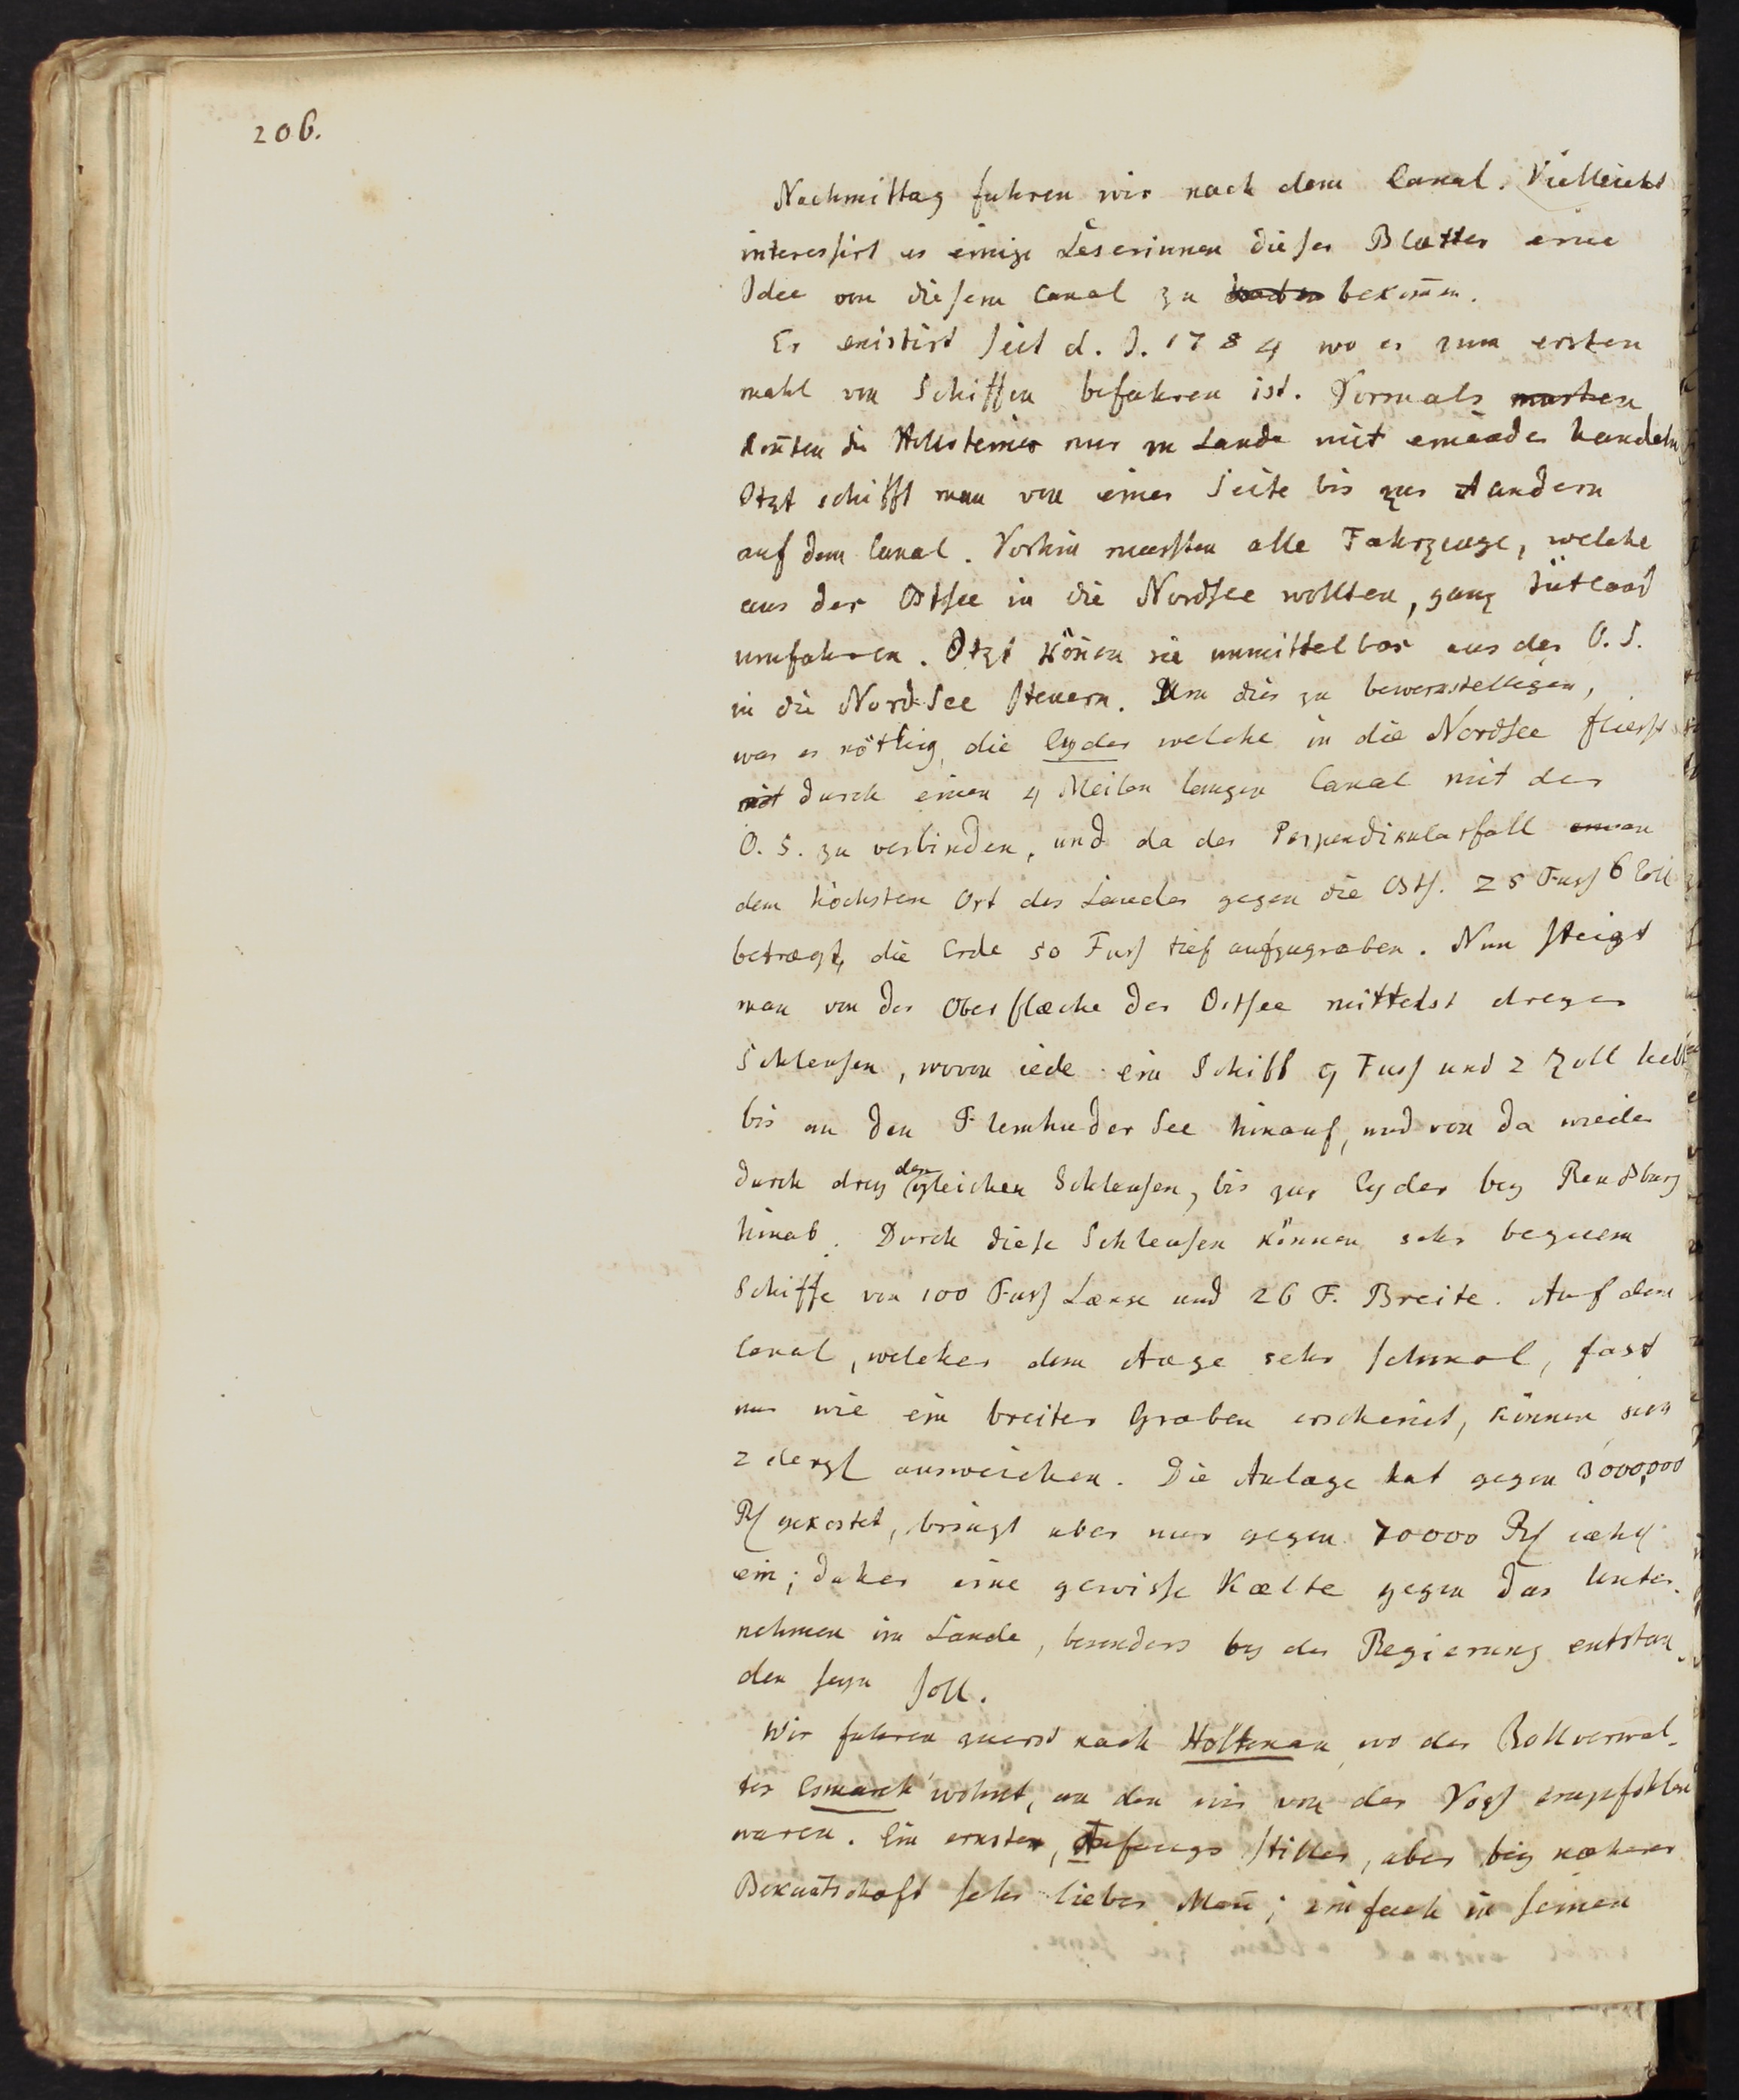 206.
Nachmittag fuhren wir nach dem Canal. Vielleicht
interessirt es einige Leserinnen dieser Blætter eine
Idee von diesem Canal zu haben bekom̄en.
Er existirt seit d. J. 1784 wo er zum ersten
mahl von Schiffen befahren ist. Vormals mussten
kon̄ten die Hollsteiner nur zu Lande mit einander handeln,
Itzt schifft man von einer Seite bis zur andern
auf dem Canal. Vorhin mussten alle Fahrzeuge, welche
aus der Ostsee in die Nordsee wollten, ganz Jütland
umfahren. Itzt kön̄en sie unmittelbar aus der O. S.
in die Nordsee steuern. Um dies zu bewerkstelligen,
war es nöthig, die Eyder welche in die Nordsee fliesst
mit durch einen 4 Meilen langen Canal mit der
O. S. zu verbinden, und da der Perpendikularfall von
dem höchsten Ort des Landes gegen die Osts. 25 Fuss 6 Zoll
betrægt, die Erde 50 Fuss tief aufzugraben. Nun steigt
man von der Oberflæche der Ostsee mittelst dreyer
Schleusen, wovon iede ein Schiff 9 Fuss und 2 Zoll hebt
bis an den Flemhuder See hinauf, und von da wieder
durch drey dergleichen Schleusen, bis zur Eyder bey Rendsburg
hinab. Durch diese Schleusen können sehr bequem
Schiffe von 100 Fuss Længe und 26 F. Breite. Auf dem
Canal, welcher dem Auge sehr schmal, fast
nur wie ein breiter Graben erscheint, können sich
2 dergl ausweichen. Die Anlage hat gegen 3000,000
Rthl gekostet, bringt aber nur gegen 70000 Rthl iæhrl
ein; daher eine gewisse Kælte gegen das Unter-
nehmen im Lande, besonders bey der Regierung entstan-
den seyn soll.
Wir fuhren zuerst nach Holtenau wo der Zollverwal-
ter Esmarch wohnt, an den wir von der Voss empfohlen
waren. Ein ernster, Anfangs stiller, aber bey næherer
Bekan̄tschaft sehr lieber Man̄; einfach in seinen